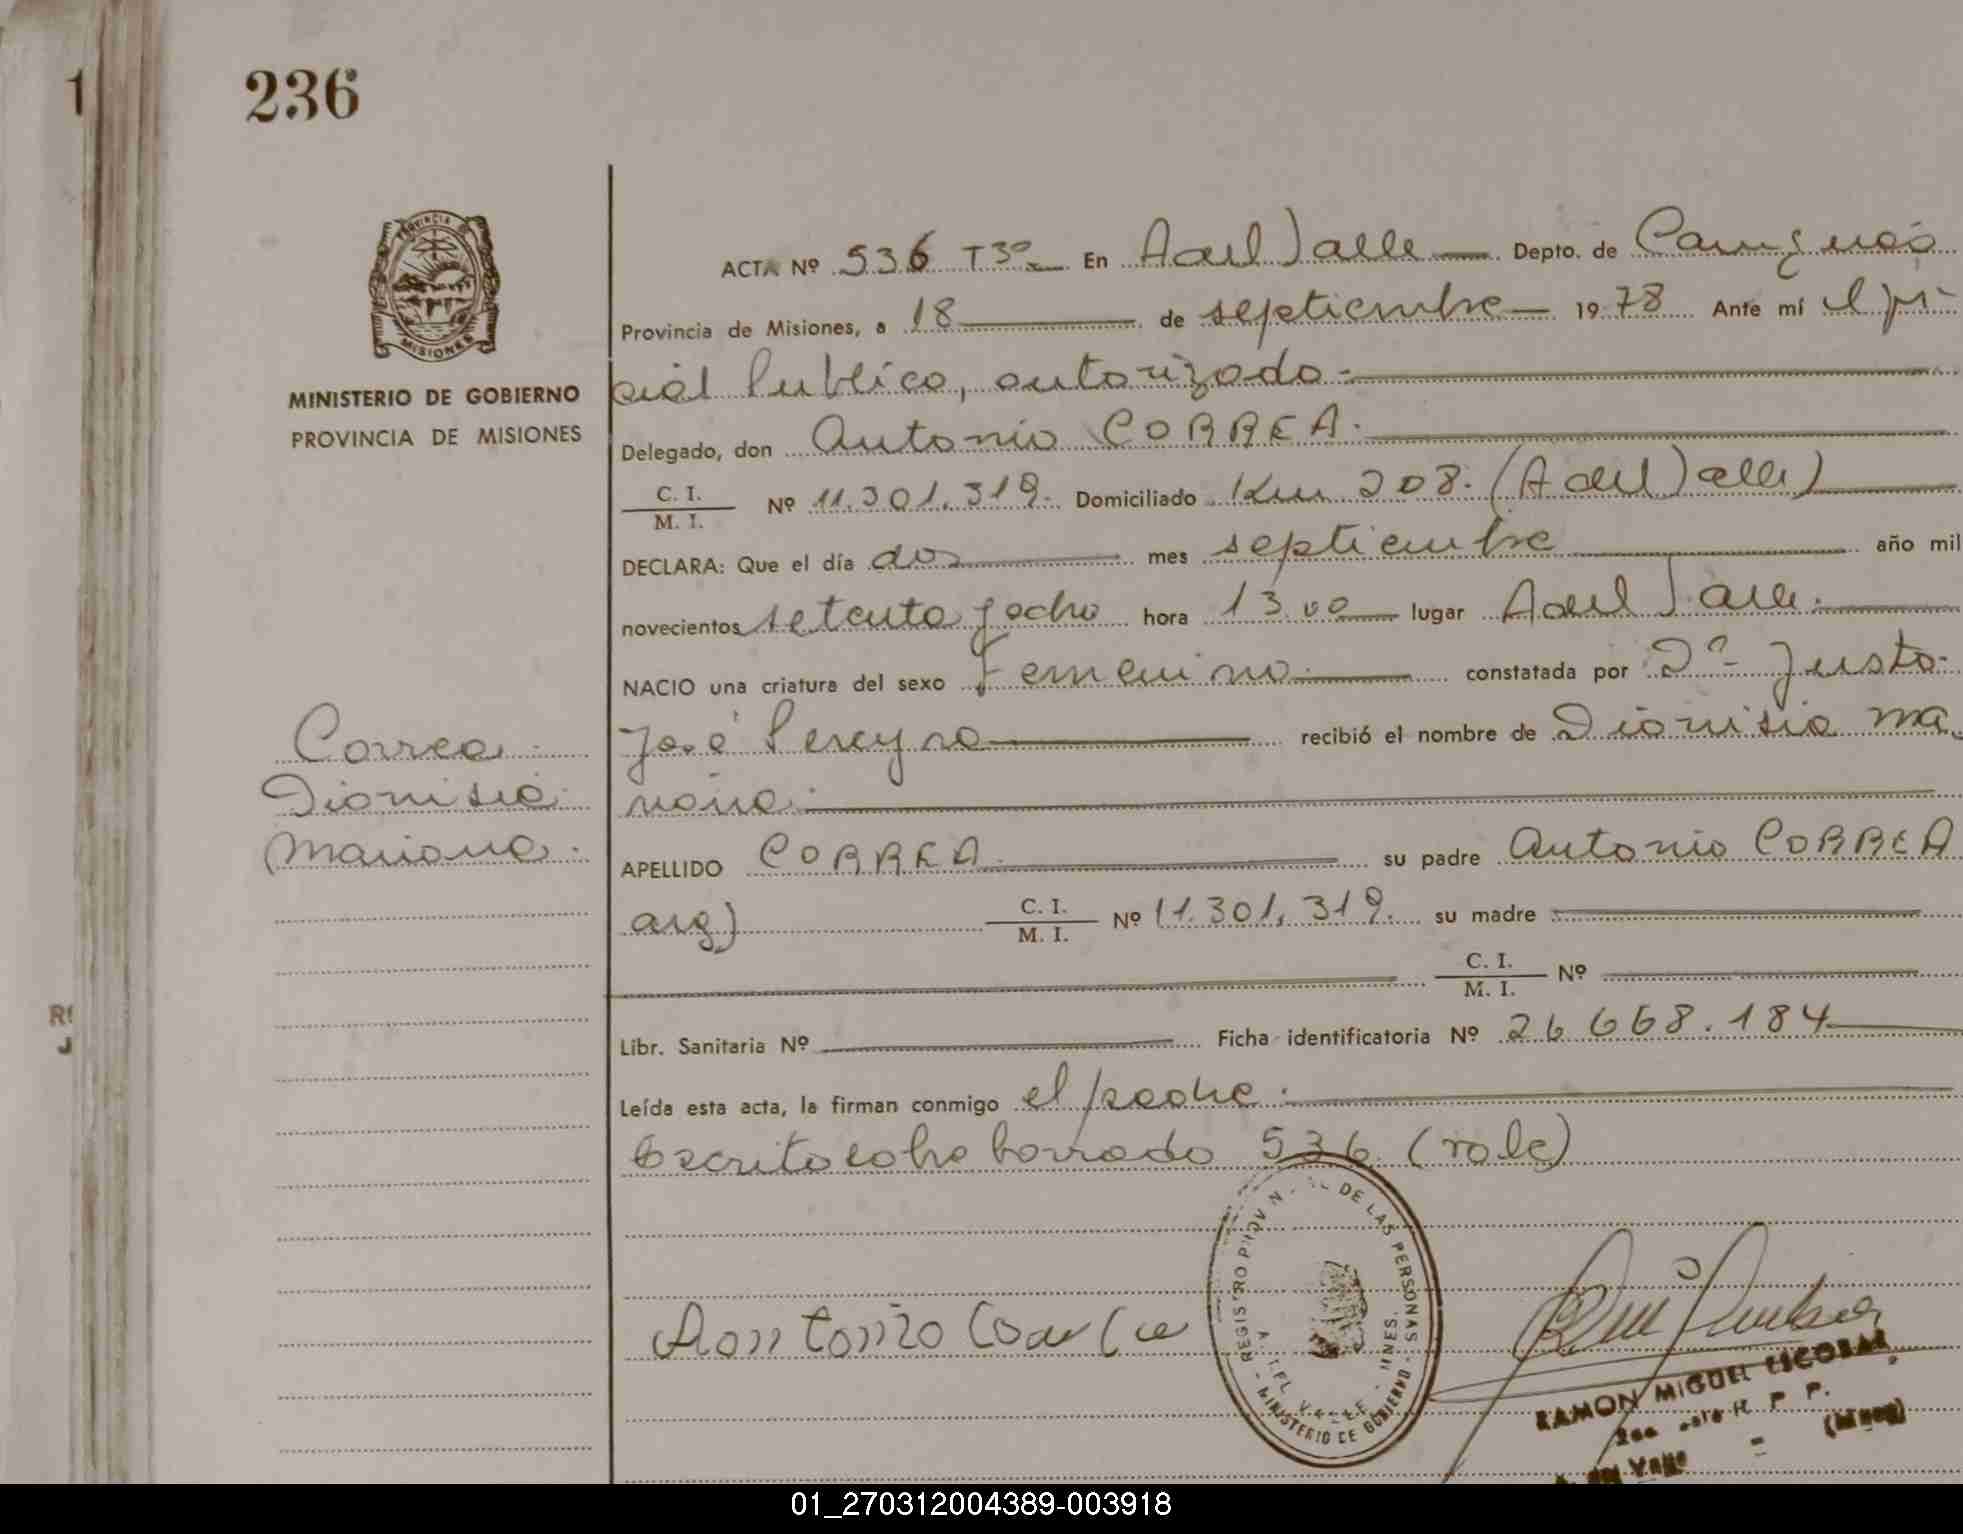 1
236
PROVINCIA
MISIONES
MINISTERIO DE GOBIERNO
PROVINCIA DE MISIONES
ACTA Nº 536 T3º En A del Valle Depto. de Cainguás
Provincia de Misiones, a 18 de septiembre 1978 Ante mí el ofi-
cial Publico, autorizado.
Delegado, don Antonio CORREA.
C. I.
M. I. Nº 11.301.319. Domiciliado Km 208. (A del Valle)
DECLARA: Que el día dos mes septiembre año mil
novecientos setenta y ocho hora 13.00 lugar A del Valle.
NACIO una criatura del sexo Femenino. constatada por Dº Justo
José Pereyra recibió el nombre de Dionisia Ma
riana.
Correa.
Dionisia
Mariana.
APELLIDO CORREA. su padre Antonio CORREA
arg) C. I.
M. I. Nº 11.301.319. su madre
C. I.
M. I. Nº
Libr. Sanitaria Nº Ficha identificatoria Nº 26.668.184
Leída esta acta, la firman conmigo el padre.
Escrito sobre borrado 536 (vale)
REGISTRO DE LAS PERSONAS
MINISTERIO DE GOBIERNO
RAMON MIGUEL ESCOBAR
01_270312004389-003918